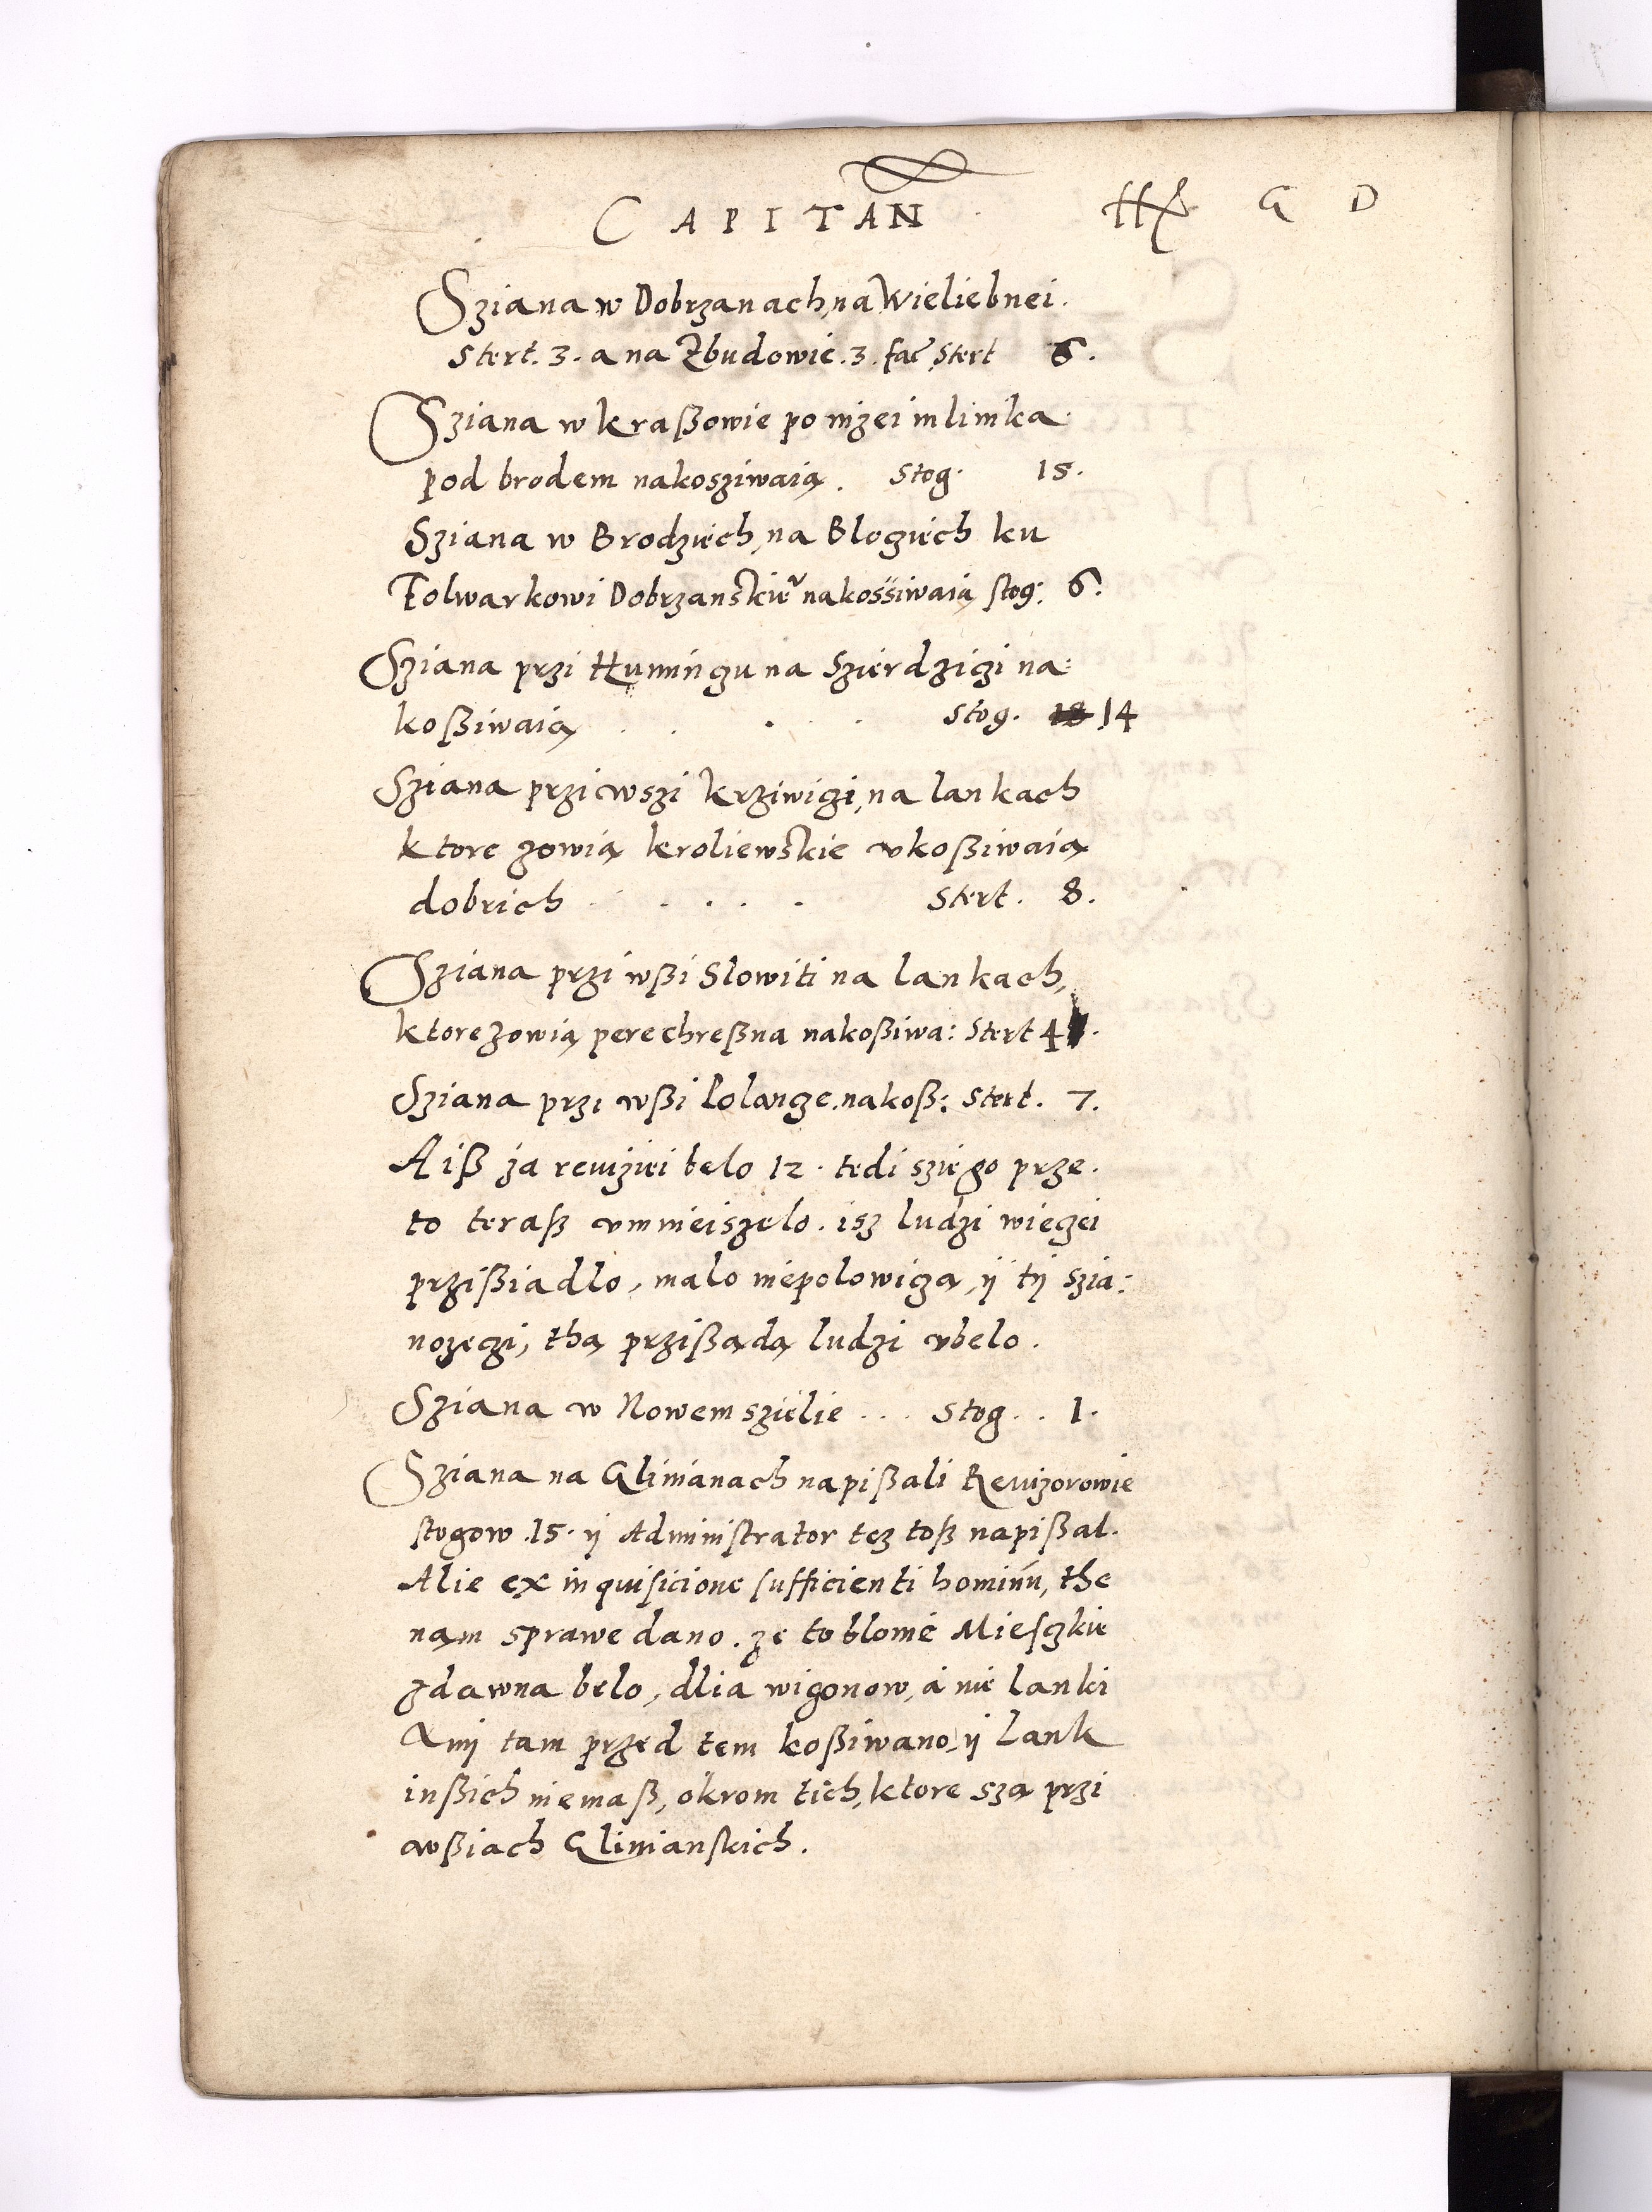 CAPITAN G D
Sziana w Dobrzanach, na Wieliebnei.
Stert. 3. a na Zbudowie. 3. fac Stert 6.
Sziana w kraßowie ponizei mlinka
pod brodem nakosziwaią. Stog. 15.
Sziana w Brodziech, na Blogiech ku
Folwarkowi Dobrzanskie nakossiwaią stog. 6.
Sziana przi Huningu na Szierdzigi na:
koßiwaią . . . . Stog. 14
Sziana przi wszi krziwigi, na lankach
ktore zowią kroliewskie vkoßiwaią
dobrich . . . . . Stert. 8.
Sziana przi wßi Slowiti na lankach,
ktore zowią perechreßna nakoßiwa: Stert 4.
Sziana przi wßi nakoß: Stert. 7.
A iß za rewiziei belo 12. tedi sziego prze.
to teraß vmnieiszelo. isz ludzi wieczei
przißiadlo, malo niepolowicza, ij tij szia:
nozeczi, thą przißadą ludzi vbelo.
Sziana w Nowem szielie . . . Stog . . 1.
Sziana na Glinianach napißali Rewizorowie
stogow .15. ij Administrator tez toß napißal.
Alie ex inquisicione sufficienti hominu, the
nam sprawe dano. ze to blonie Miesczkie
zdawna belo, dlia wigonow, a nie lanki
Anij tam przed tem koßiwano, ij Lank
inßich niemaß, okrom tich, ktore szą przi
wßiach Glinianskich.